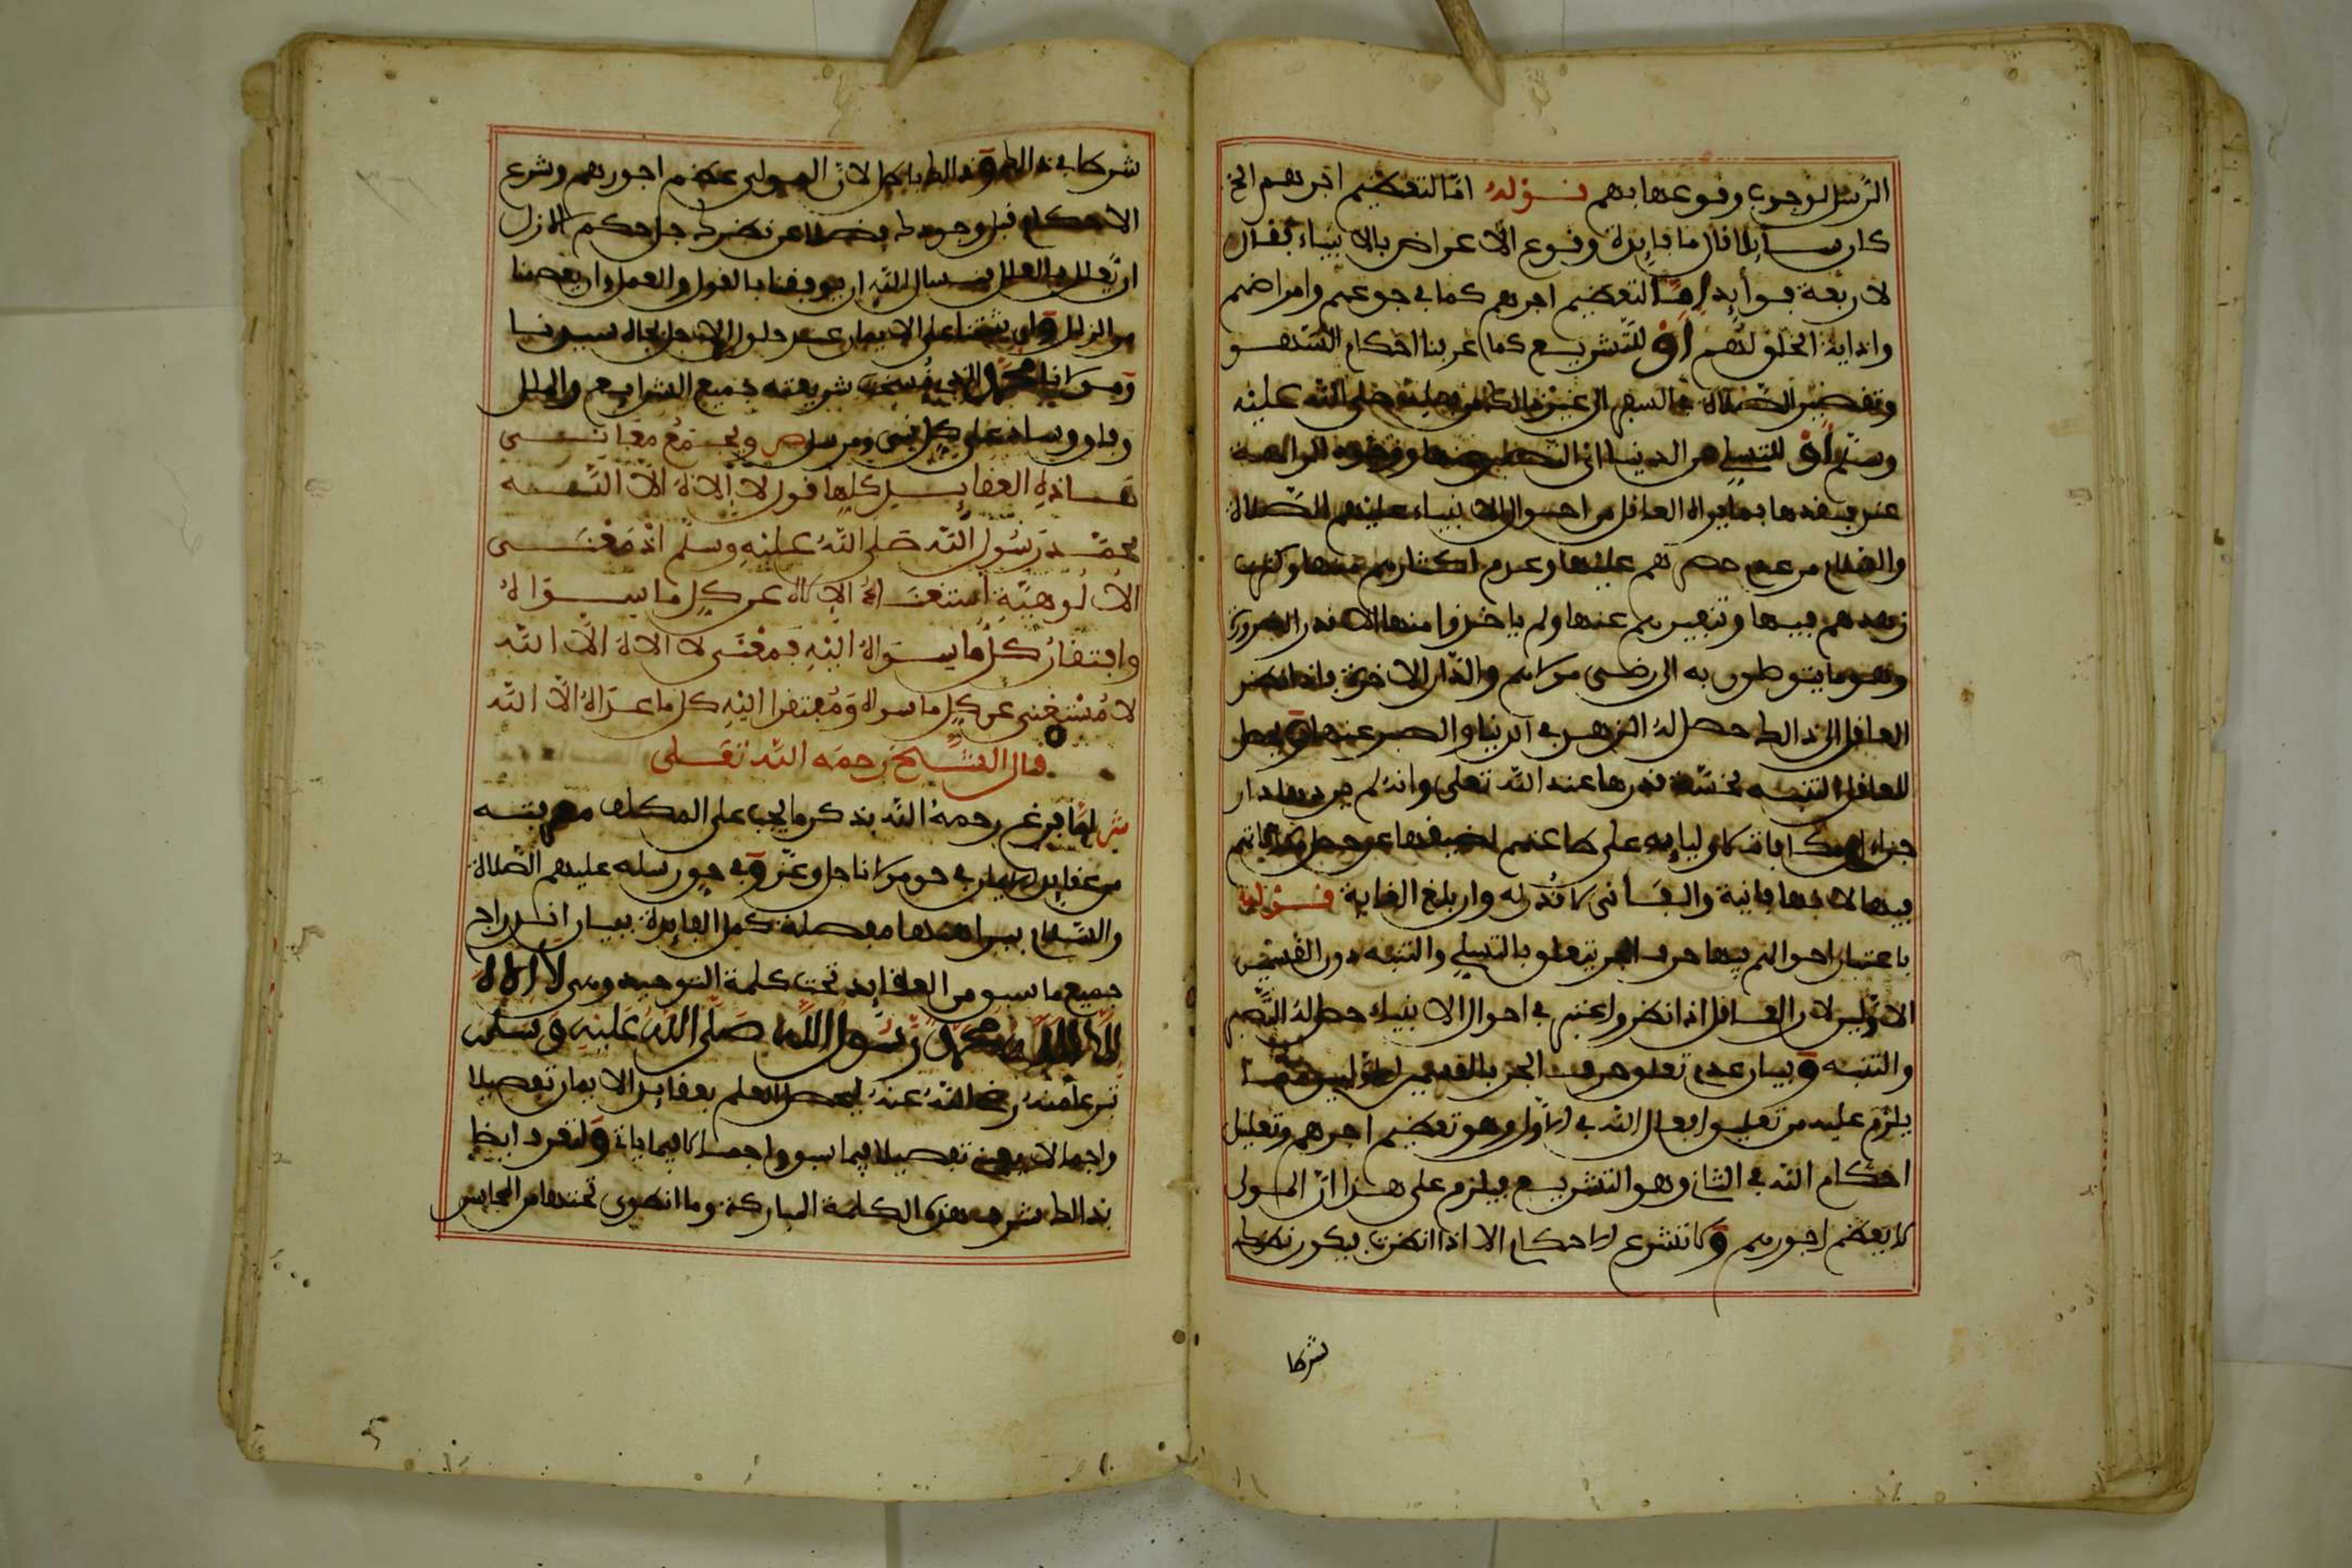 الرسل لوجوب وقوعها بهم قوله اما لتعظيم اجرهم الخ
كان سايلا قال ما فايدة وقوع الاعراض بالانبياء فقال
لاربعة فوايد اما لتعظيم اجرهم كما في جوعهم وامراضهم
واذاية الخلق لهم او للتشريع كما عرفنا احكام السهو
وتقصير الصلاة صلى الله عليه
وسلم او للتسلي عن الدنيا
عند فقدها بما يراه العاقل من احوال الانبياء عليهم الصلاة
والسلام من عدم حصرهم عليها وعدم اكثارهم منها وكثرت
زهدهم فيها وتنفيرهم عنها ولم ياخذوا منها الا قدر الضرورة
وهو ما يتوصلون به الى رضى مولاهم والدار الاخرة فاذا نظر
العاقل الى ذالك حصل له الزهد في الدنيا والصبر عنها ويحصل
للعاقل التنبه لخسة قدرها عند الله تعلى وانه لم يرد بها دار
جزاء اوليايه على طاعتهم
فيها لانها فانية والفاني لا قدر له وان بلغ الغاية قوله
باعتبار احوالهم فيها حرف الجر يتعلق بالتسلي والتنبه دون القسمين
الاولين لان العاقل اذا نظر واعتبر في احوال الانبياء حصل له الصبر
والتنبه وبيان عدم تعلق حرف الجر بالقسمين الاولين
يلزم عليه من تعليل افعال الله في الاول وهو تعظيم اجرهم وتعليل
احكام الله في الثاني وهو التشريع فيلزم على هذا ان المولى
لا يعظم اجورهم ولا تشرع الاحكام الا اذا نظرت فيكون نظرك
شرطا
شرطا في ذالك وذالك باطل لان المولى عظم اجورهم وشرع
الاحكام قبل وجودك فضلا عن نظرك جل حكم الازل
ان يعلل بالعلل نسال الله ان يوفقنا بالقول والعمل وان يعصمنا
من الزلل وان يثبتنا على الايمان عند حلول الاجل بجاه سيدنا
ومولانا محمد الذي نسخت شريعته جميع الشرايع والملل
على كل نبي ومرسل ص ويجمع معاني
هاذه العقايد كلها قول لا الاه الا الله
محمد رسول الله صلى الله عليه وسلم اذ معنى
الالوهية استغناء الالاه عن كل ما سواه
وافتقار كل ما سواه اليه فمعنى لا الاه الا الله
لا مستغني عن كل ما سواه ومفتقرا اليه كل ما عداه الا الله
قال الشيخ رحمه الله تعلى
ش لما فرغ رحمه الله بذكر ما يجب على المكلف معرفته
من عقايد الايمان في حق مولانا جل وعز وفي حق رسله عليهم الصلاة
والسلام ببراهنها مفصلة كمل الفايدة ببيان اندراج
جميع ما سبق من العقايد تحت كلمة التوحيد وهي لا الاه
الا الله محمد رسول الله صلى الله عليه وسلم
تبرعا منه رضي الله عنه ليحصل العلم بعقايد الايمان تفصيلا
واجمالا تفصيلا فيما سبق واجمالا فيما ياتي ولتعرف ايضا
بذالك شرف هذه الكلمة المباركة وما انطوى تحتها من المحاسن